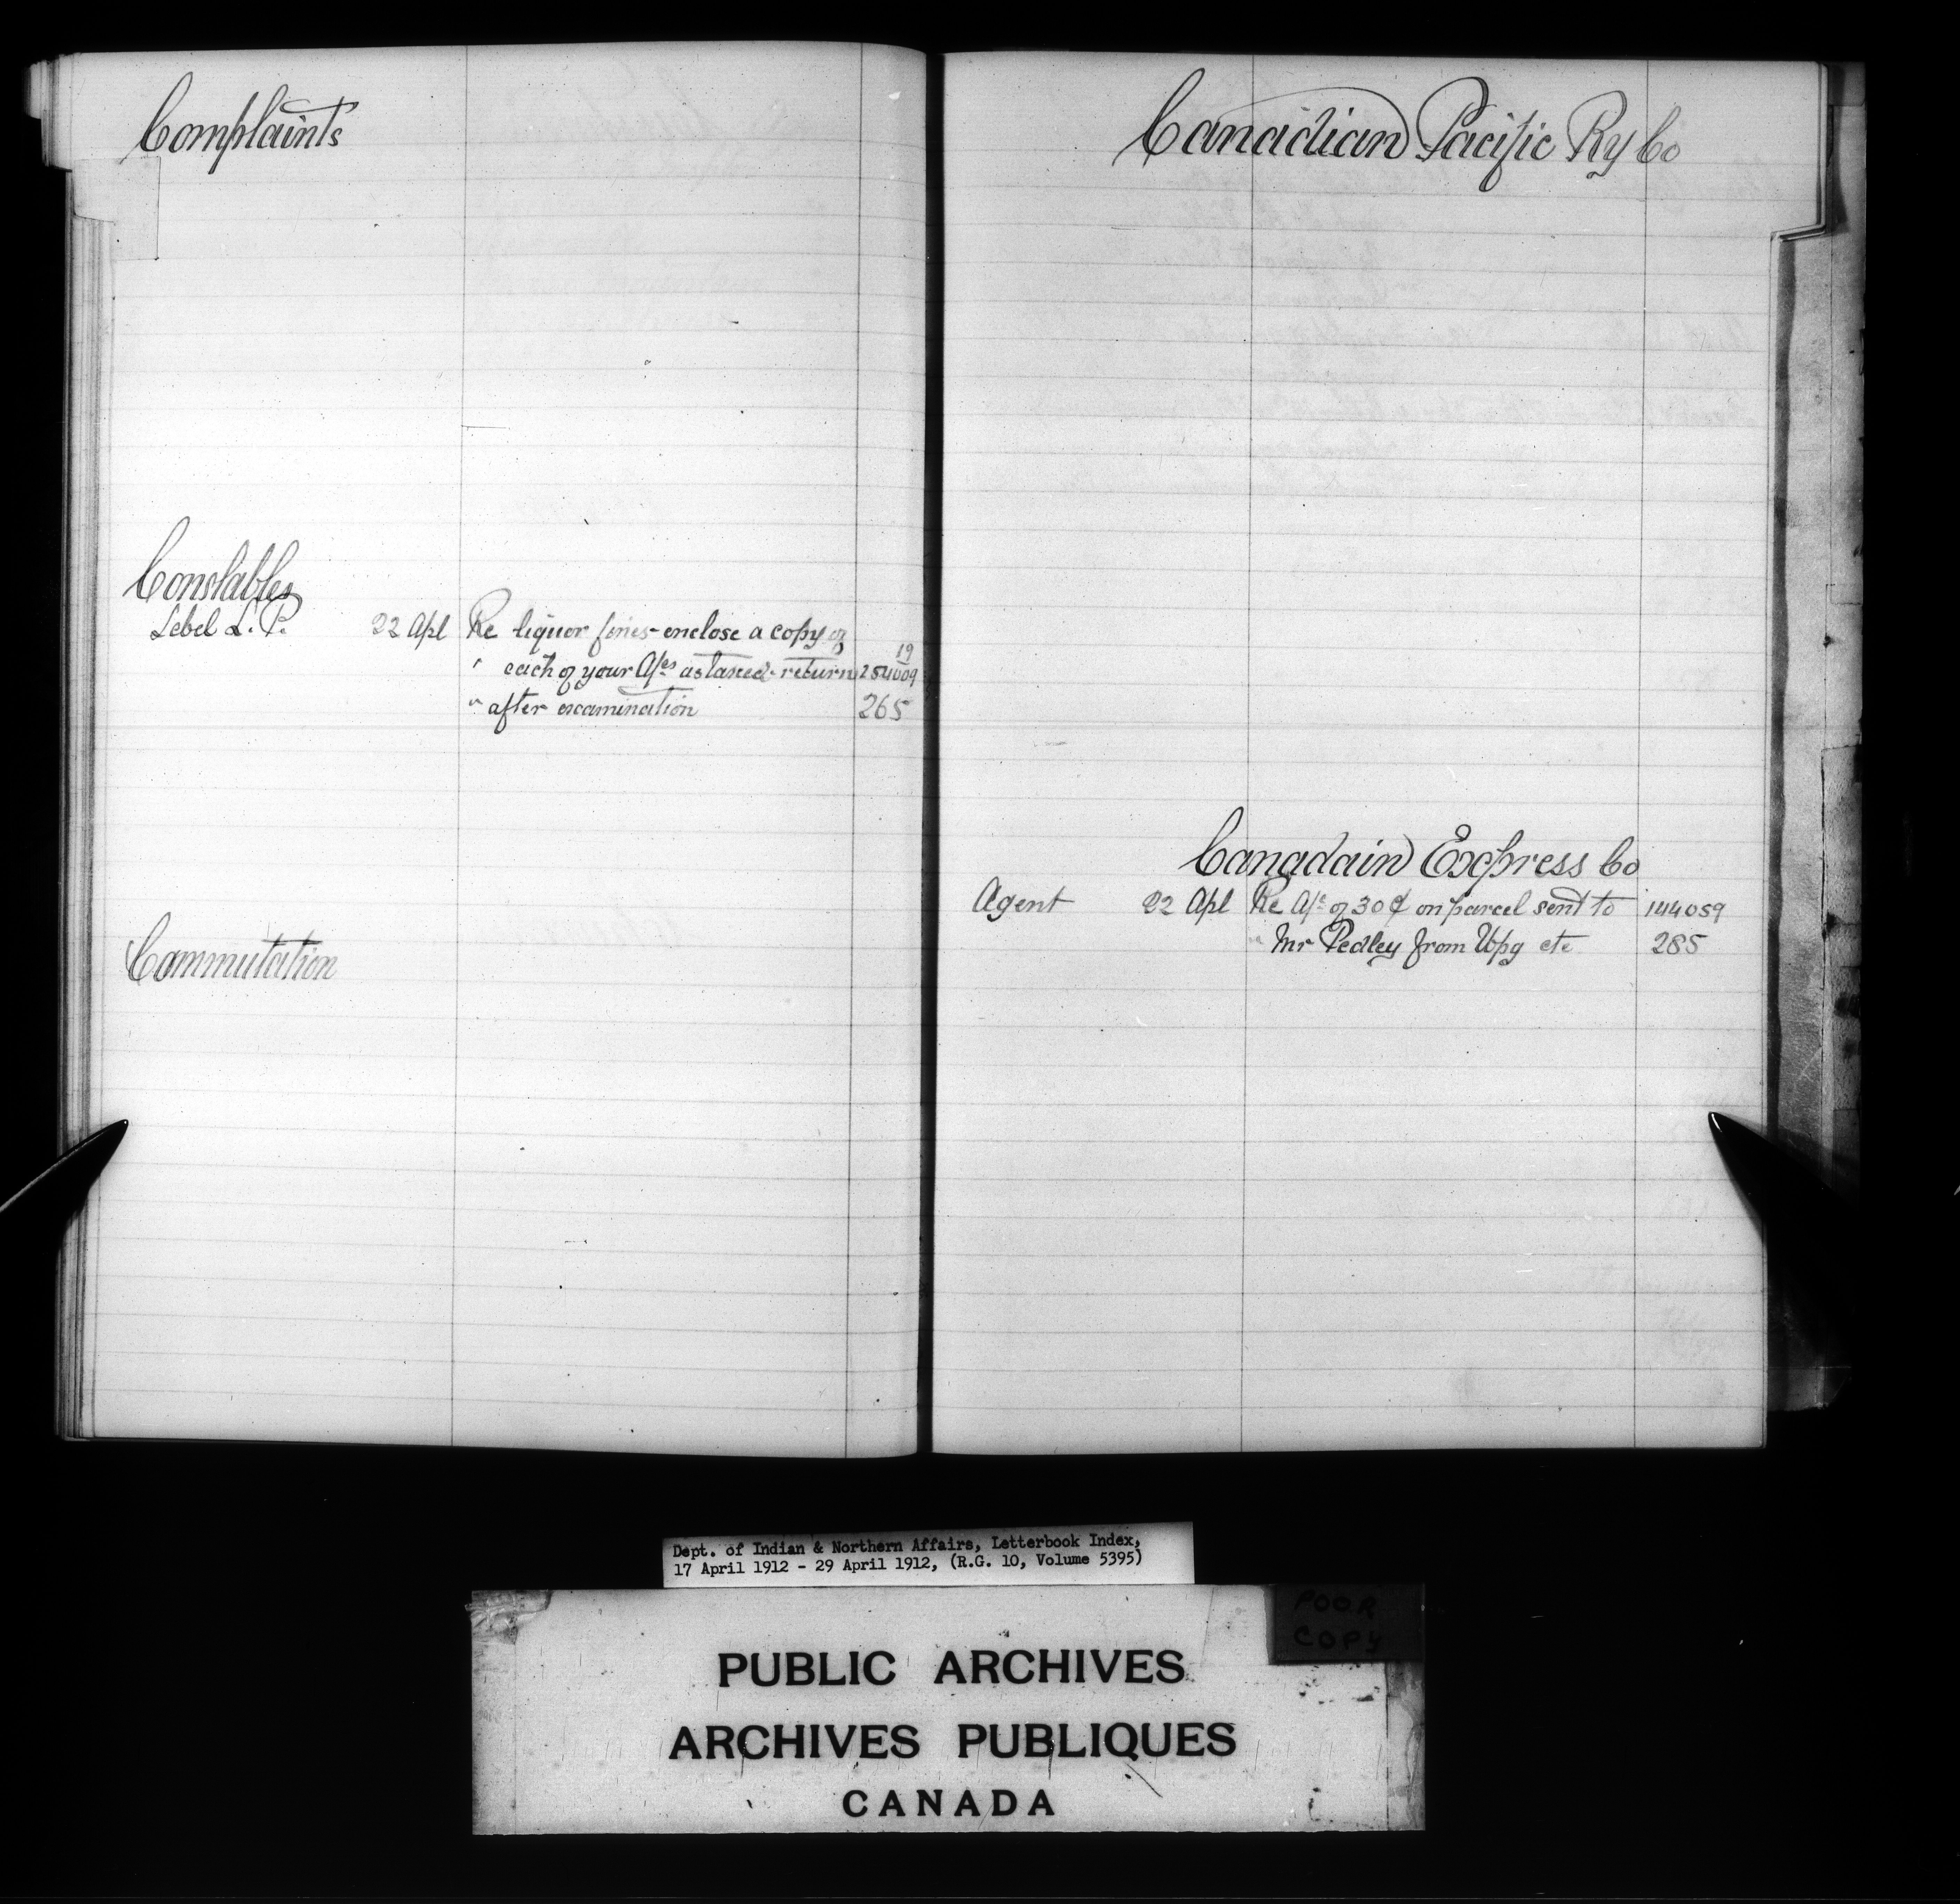 Complaints
Constables
Lebel L. P. 22 Apl Re liquor fines - enclose a copy of
" each of your A/cs as taxed - return 19 254009
" after examination 265
Commutation
Canadian Pacific Ry Co
Canadain Express Co
Agent 22 Apl Re A/c of 30¢ on parcel sent to 144059
" Mr Pedley from Wpg etc 285
Dept. of Indian & Northern Affairs, Letterbook Index,
17 April 1912 - 29 April 1912, (R.G. 10, Volume 5395)
POOR
COPY
PUBLIC ARCHIVES
ARCHIVES PUBLIQUES
CANADA